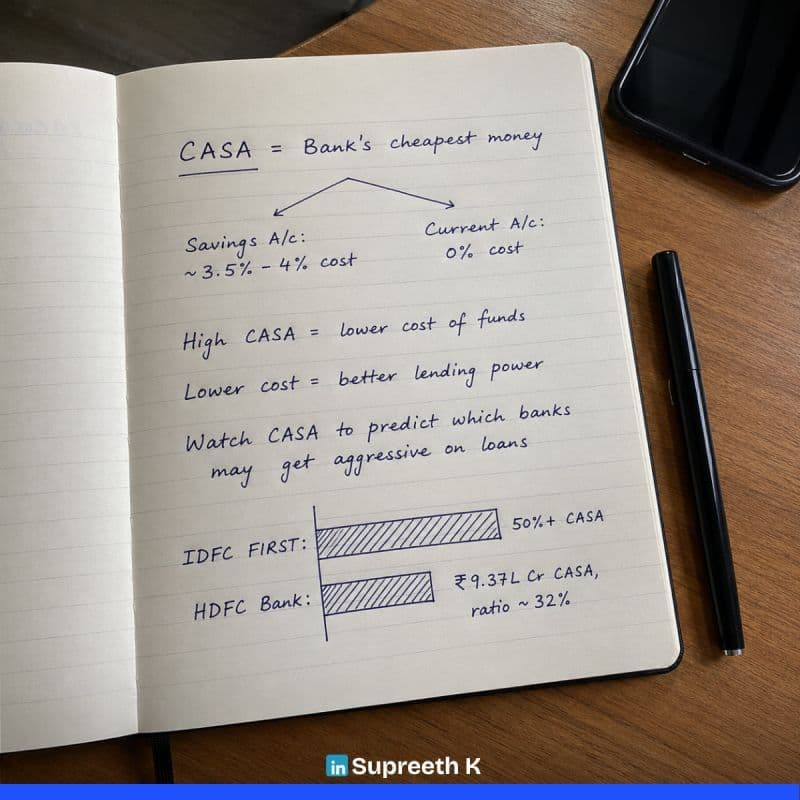 CASA = Bank's cheapest money
Savings A/c:
~3.5% - 4% cost
Current A/c:
0% cost
High CASA = lower cost of funds
Lower cost = better lending power
Watch CASA to predict which banks
may get aggressive on loans
IDFC FIRST:
50%+ CASA
HDFC Bank:
₹9.37L Cr CASA,
ratio ~ 32%
in Supreeth K